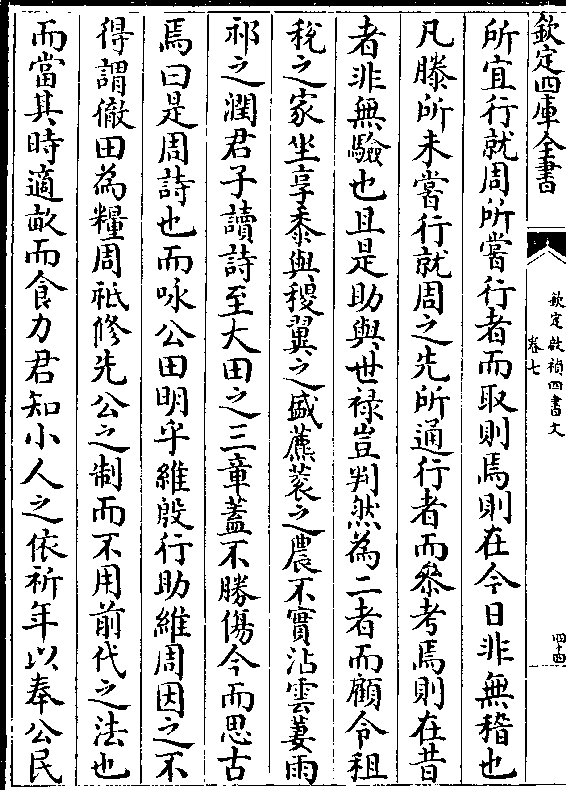 欽定四庫全書
欽定啟禎四書文
卷七
四十四
所宜行就周所嘗行者而取則焉則在今日非無稽也
凡滕所未嘗行就周之先所通行者而叅考焉則在昔
者非無驗也且是助與世禄豈判然為二者而顧令租
稅之家坐享黍與稷翼之盛薦蓘之農不實沾雲萋雨
祁之潤君子讀詩至大田之三章蓋不勝傷今而思古
焉曰是周詩也而咏公田明乎維殷行助維周因之不
得謂徹田為糧周祇修先公之制而不用前代之法也
而當其時適畝而食力君知小人之依祈年以奉公民